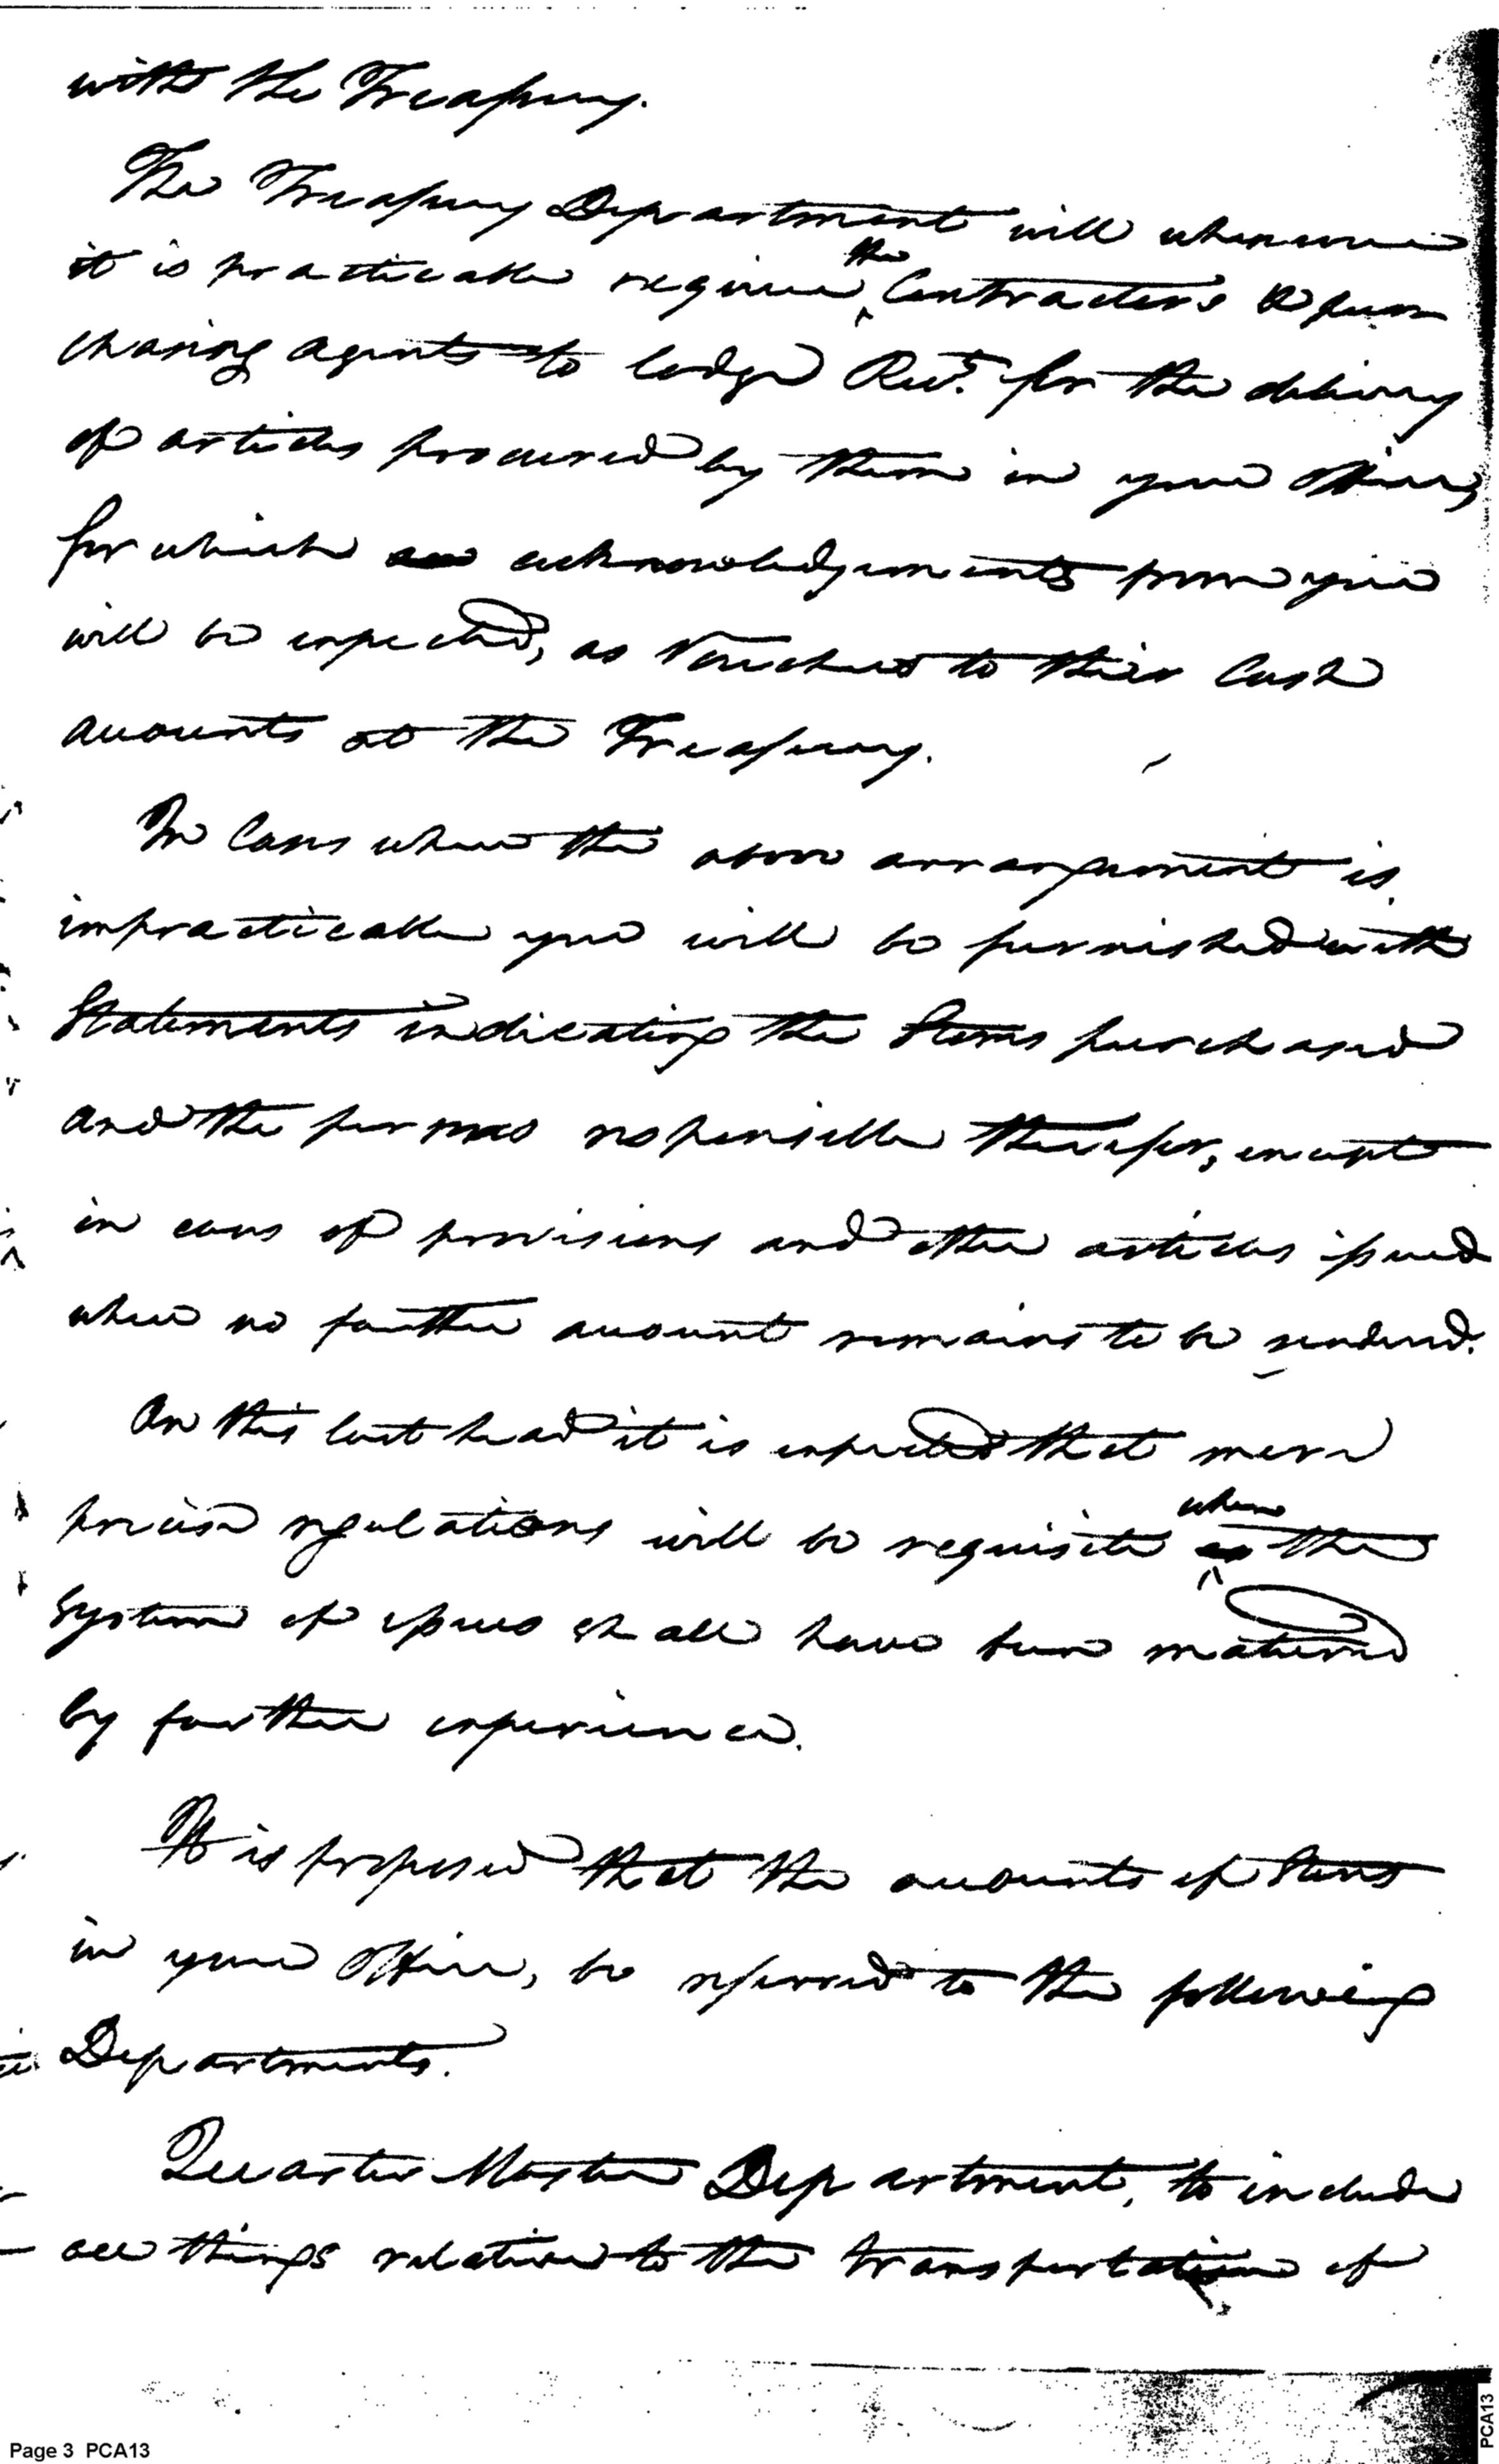 with the Treasury.
The Treasury Department will whenever
it is practicable require the Contractors & pur
chasing agents to lodge Rect. for the delivery
of articles procured by them in your Office,
for which acknowledgements from you
will be expected, as Vouchers to their Cash
accounts at the Treasury.
In Cases where the above arrangement is
impracticable you will be furnished with
Statements indicating the Stores purchased
and the persons responsible therefor, except
in cases of provisions and other articles issued
where no further account remains to be rendered.
On this last head it is expected that more
precise regulations will be requisite when the
system of issues shall have been matured
by further experience.
It is proposed that the accounts of Stores
in your Office, be referred to the following
Departments.
Quarter Master Department, to include
all things relative to the transportation of
Page 3 PCA13
PCA13